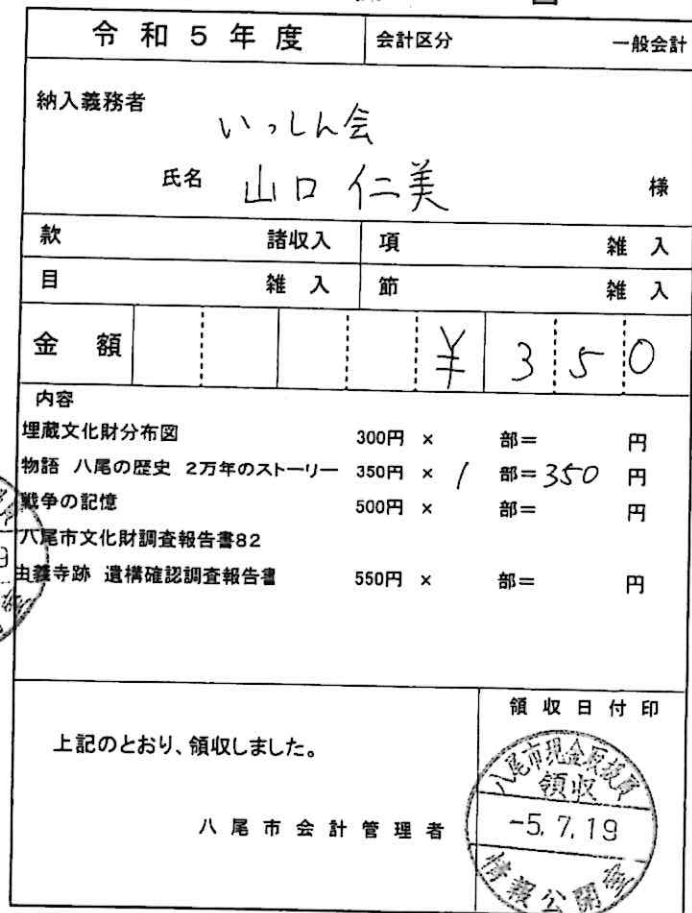 令和5年度 会計区分 一般会計
納入義務者
いっしん会
氏名 山口 仁美 様
款 諸収入 項 雑入
目 雑入 節 雑入
金額 ¥350
内容
埋蔵文化財分布図 300円 × 部= 円
物語 八尾の歴史 2万年のストーリー 350円 × 1 部=350 円
戦争の記憶 500円 × 部= 円
八尾市文化財調査報告書82
由義寺跡 遺構確認調査報告書 550円 × 部= 円
領収日付印
上記のとおり、領収しました。
八尾市会計管理者
八尾市現金取扱員
領収
-5.7.19
情報公開室